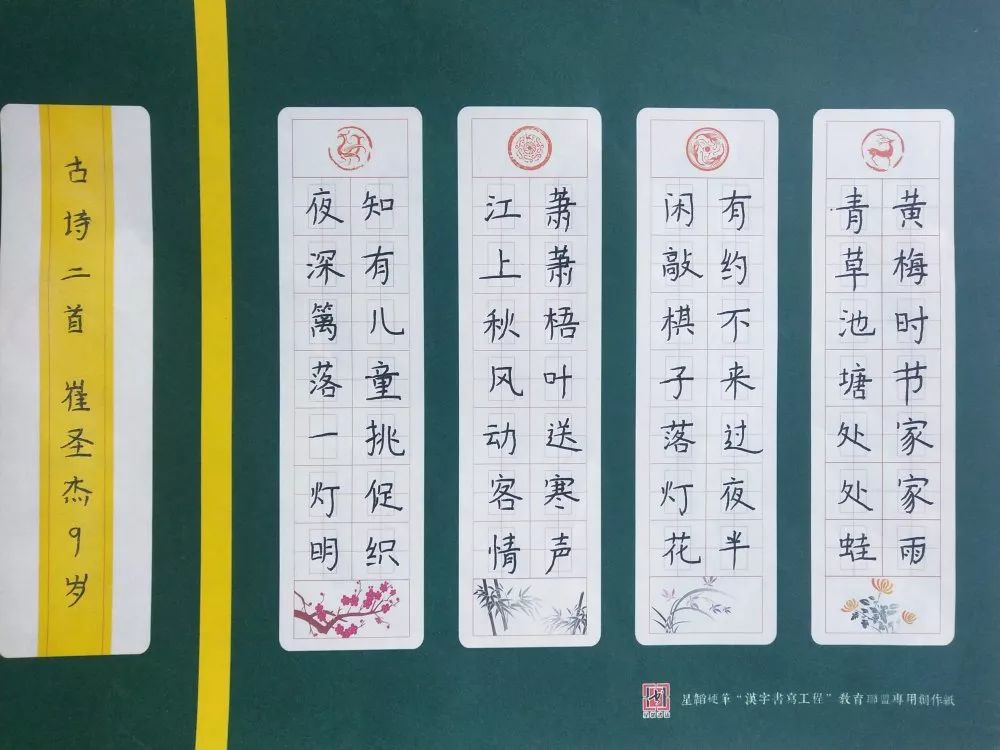 黄梅时节家家雨
青草池塘处处蛙
有约不来过夜半
闲敲棋子落灯花
萧萧梧叶送寒声
江上秋风动客情
知有儿童挑促织
夜深篱落一灯明
古诗二首 崔圣杰9岁
星韜硬筆“漢字書寫工程”教育聯盟專用創作紙